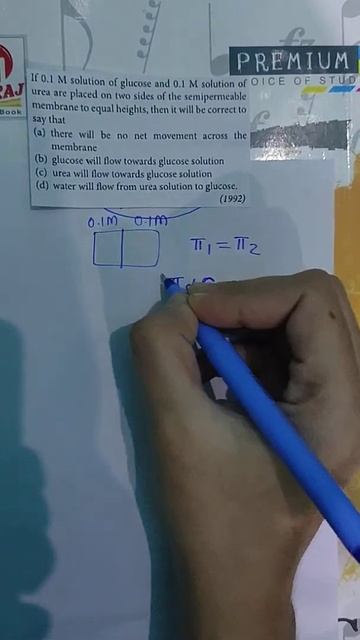 PREMIUM
OICE OF STUD
RAJ
Book
If 0.1 M solution of glucose and 0.1 M solution of
urea are placed on two sides of the semipermeable
membrane to equal heights, then it will be correct to
say that
(a) there will be no net movement across the
membrane
(b) glucose will flow towards glucose solution
(c) urea will flow towards glucose solution
(d) water will flow from urea solution to glucose.
(1992)
0.1M 0.1M
π₁ = π₂